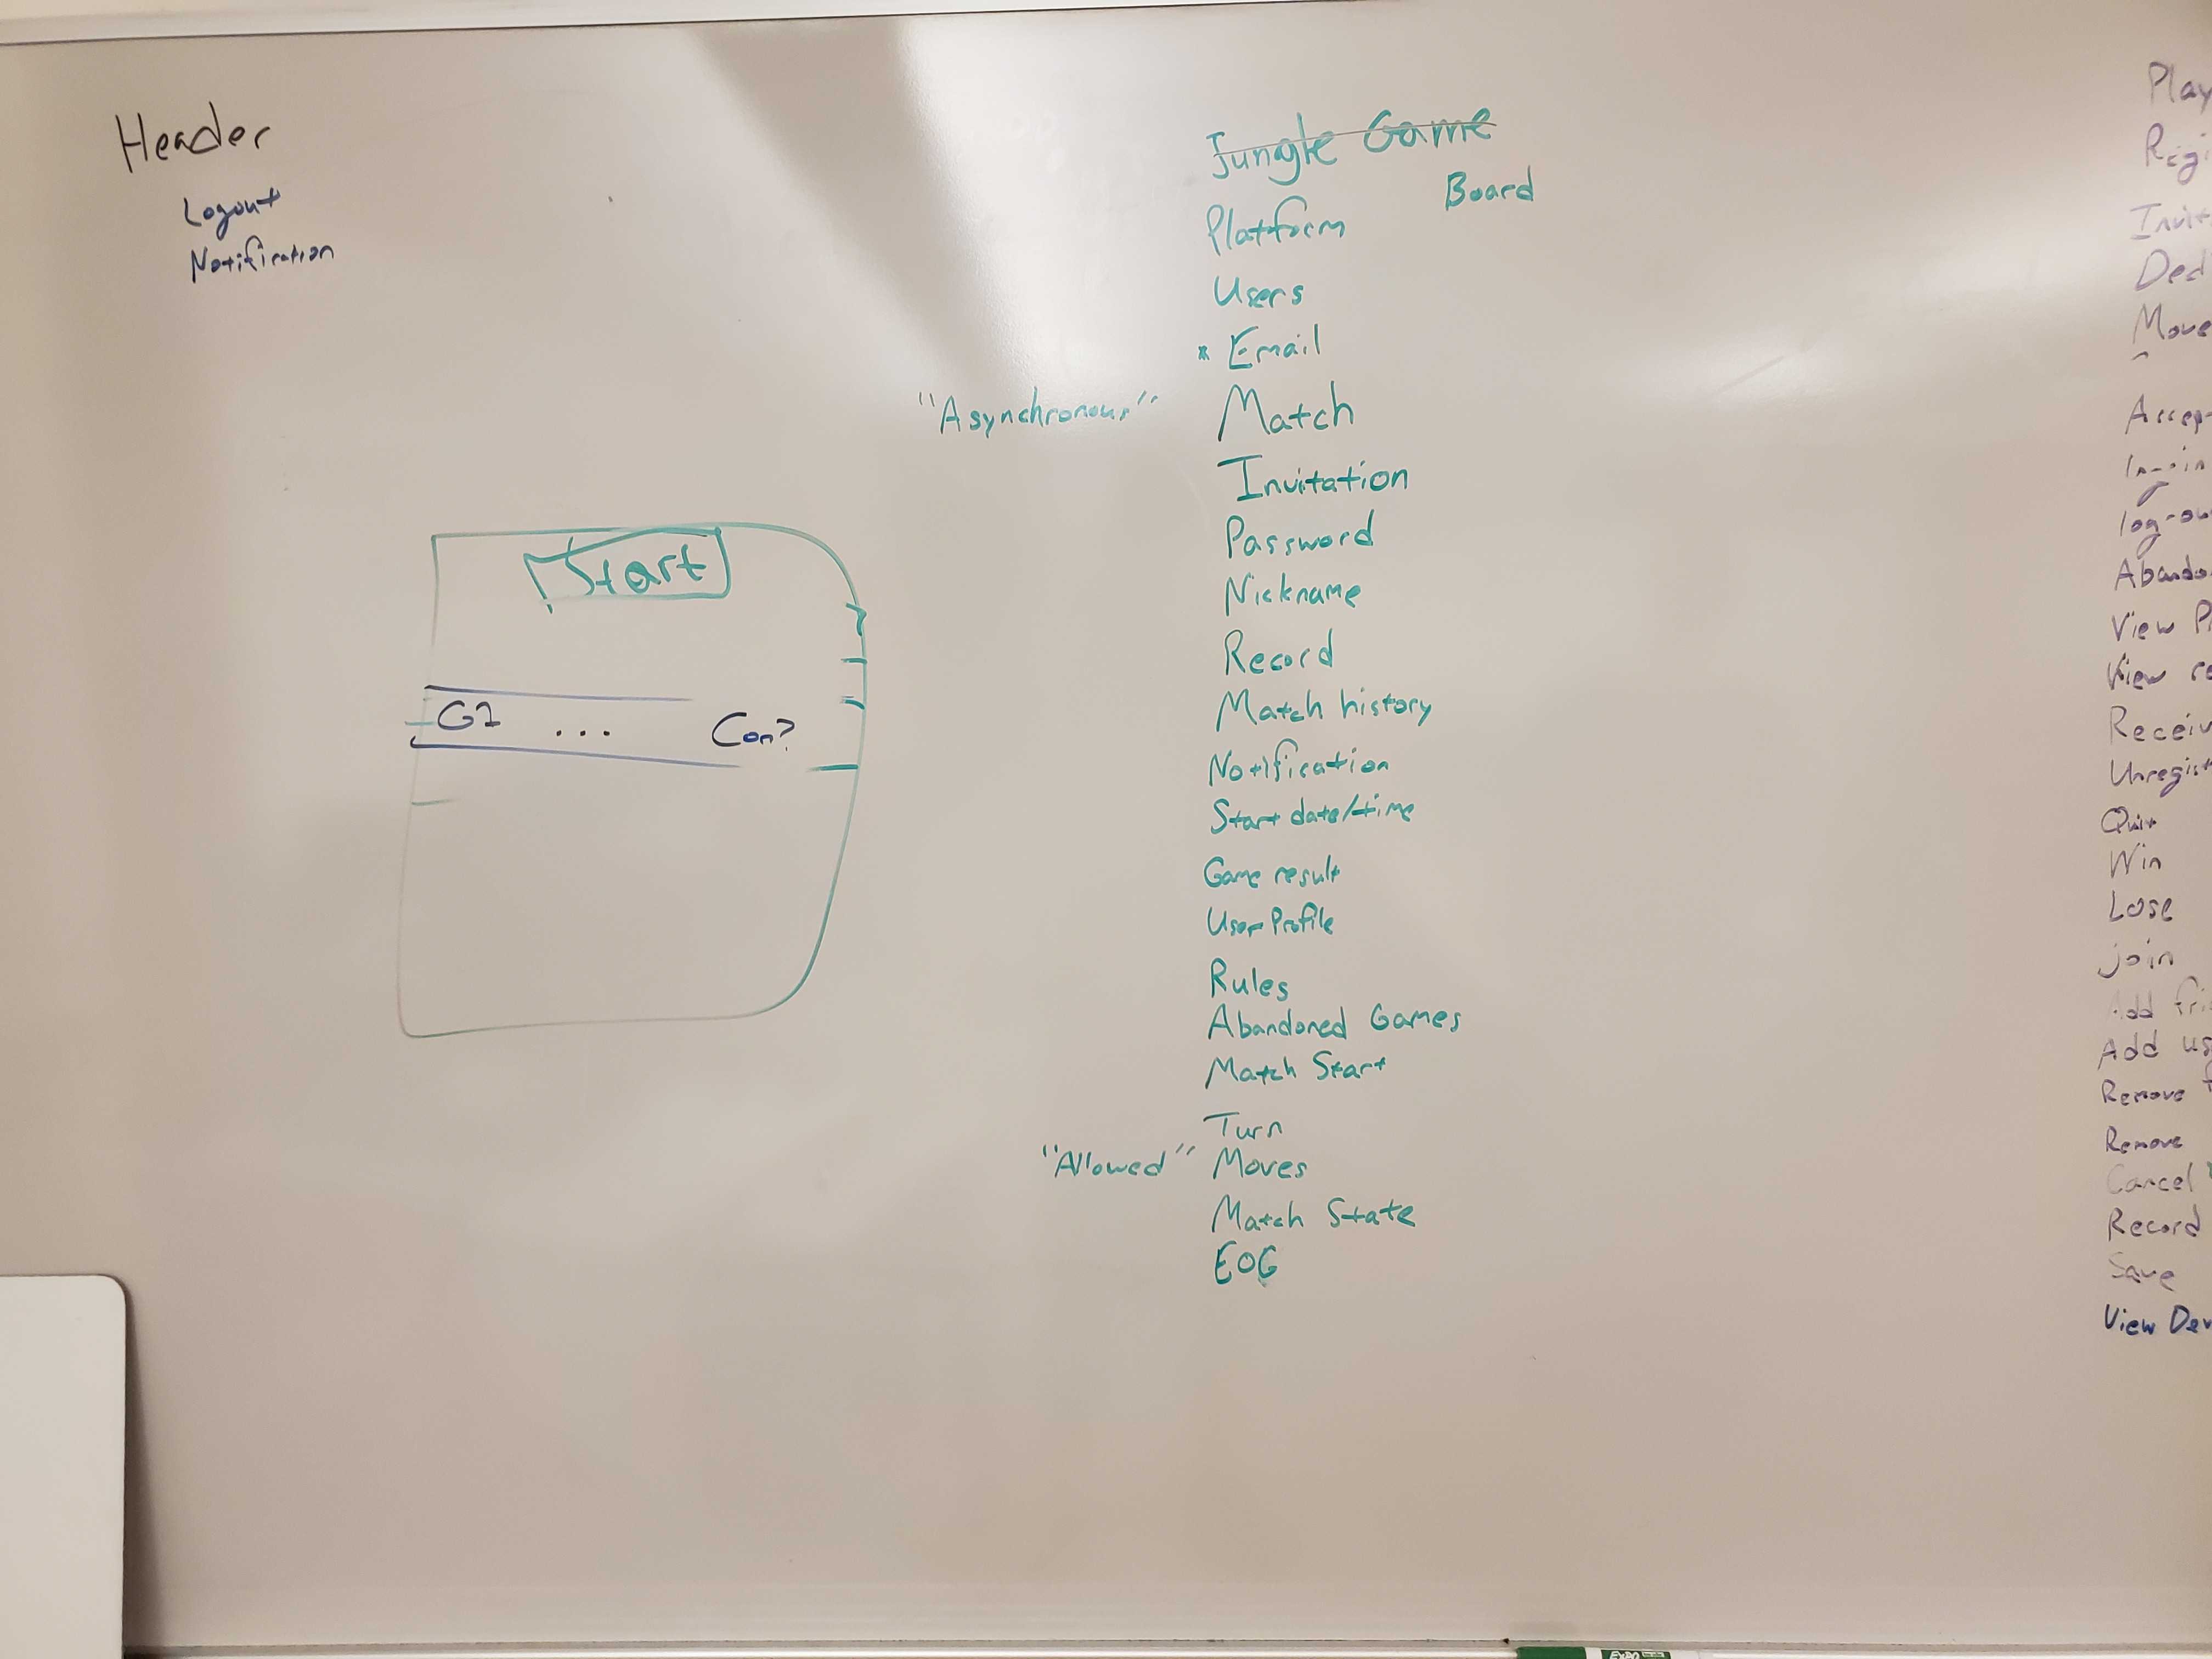 Header
Logout
Notification
Start
G1 ... Con?
Jungle Game
Board
Platform
Users
* Email
"Asynchronous" Match
Invitation
Password
Nickname
Record
Match history
Notification
Start date/time
Game result
User Profile
Rules
Abandoned Games
Match Start
Turn
"Allowed" Moves
Match State
EOG
Play
Regi
Invit
Decl
Move
Accep
log-in
log-ou
Abando
View Pr
View re
Receiv
Unregist
Quit
Win
Lose
join
Add frie
Add us
Remove f
Remove
Cancel
Record
Save
View Dev